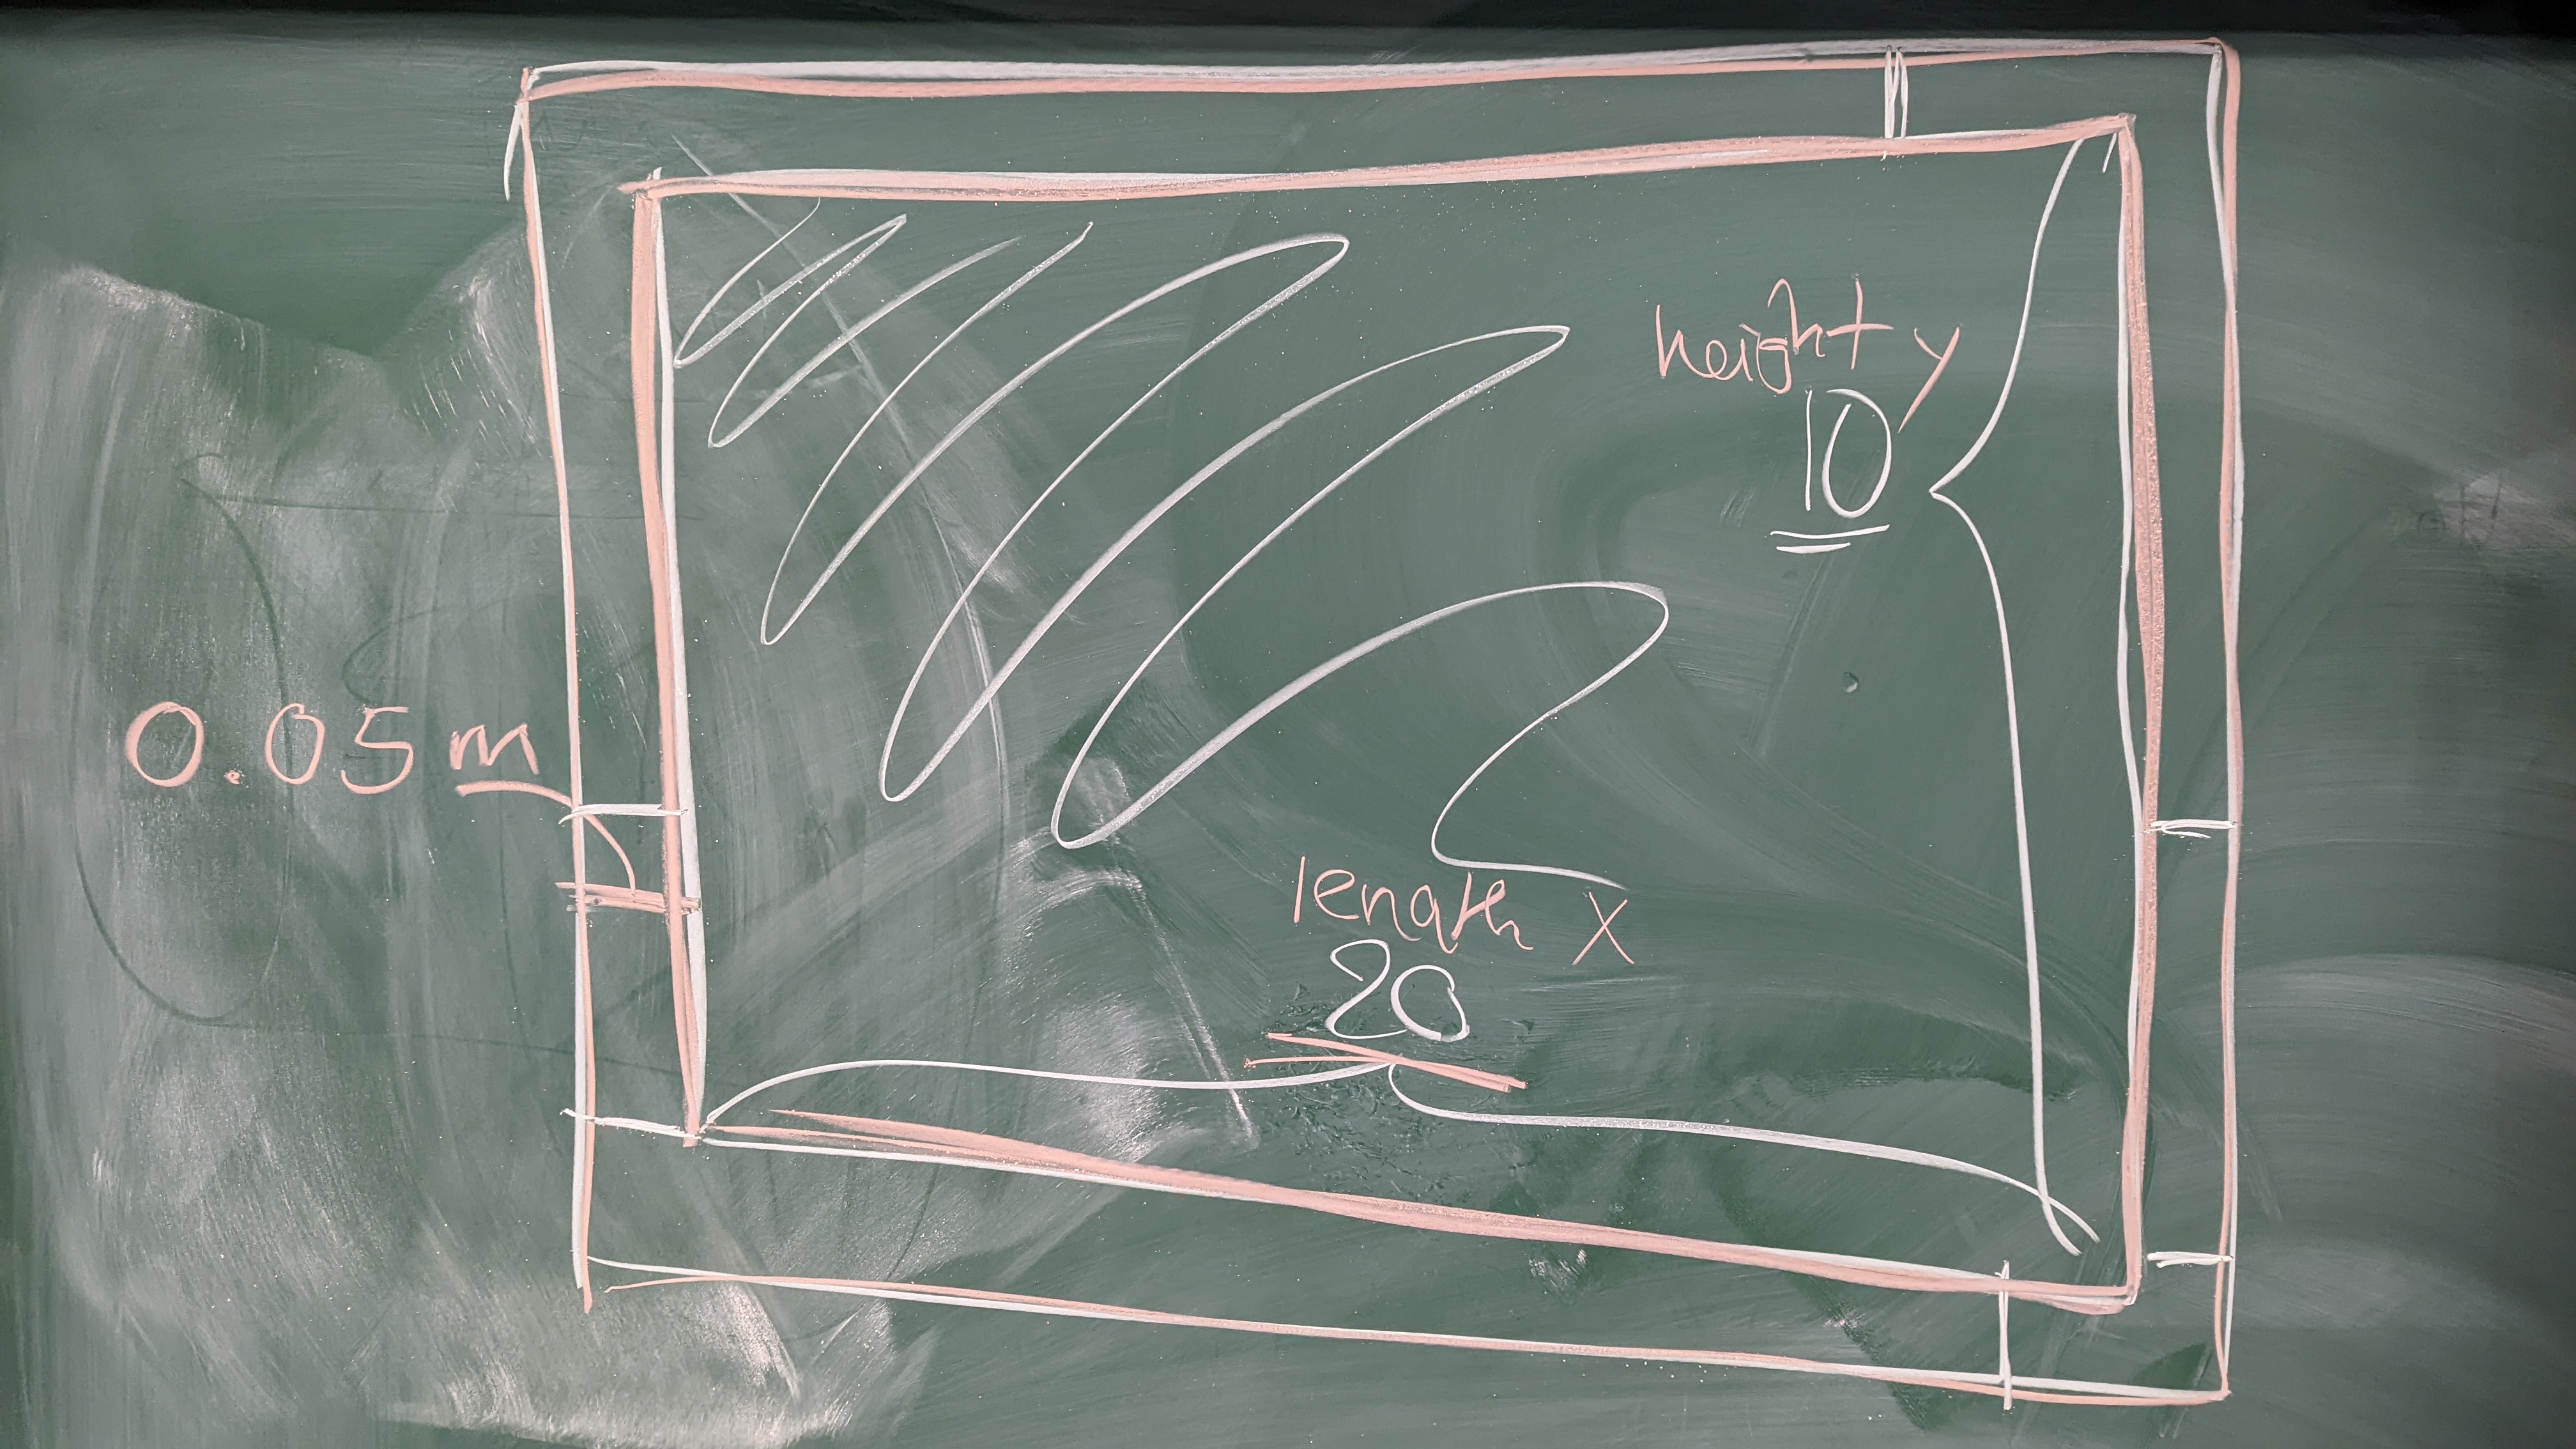 height y
10
0.05m
length x
20